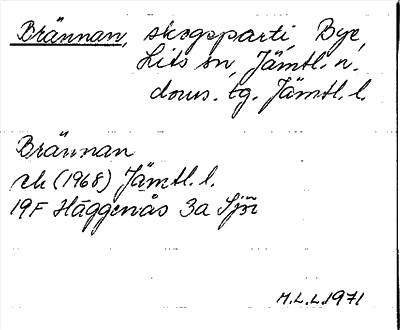 Brännan, skogsparti, Bye,
Lits sn, Jämtl. n.
doms. tg. Jämtl. l.
Brännan
rk (1968) Jämtl. l.
19F Häggenås 3a Sjör
M.L.L. 1971